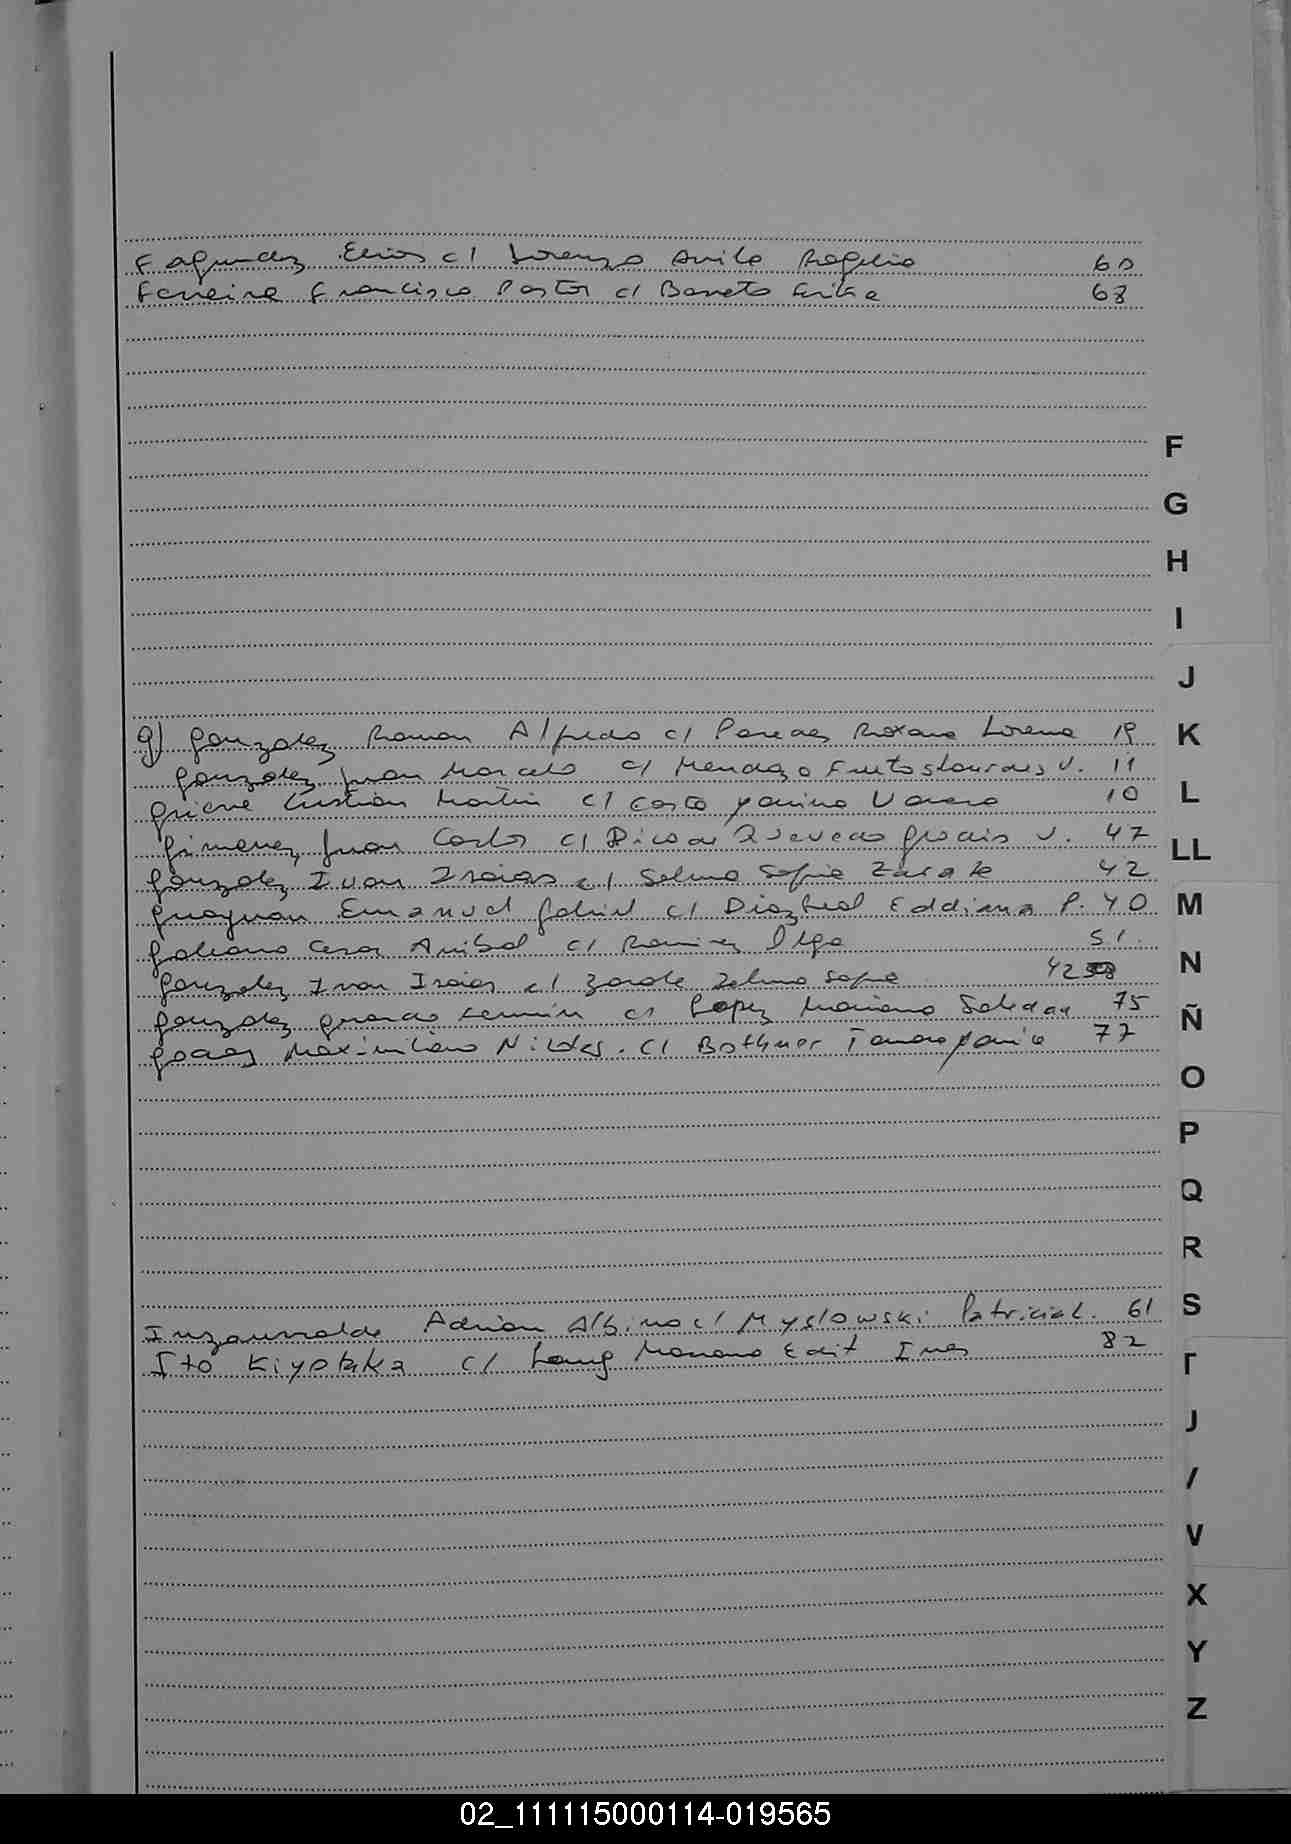 Fagundez Elios c/ Lorenzo Avila Rogelio 60
Ferreira Francisco Pastor c/ Barreto Erika 68
F
G
H
I
J
g) Gonzalez Ramon Alfredo c/ Paredes Roxana Lorena 19
K
Gonzalez Juan Marcelo c/ Mendoza Frutos Lourdes V. 11
L
Cristian Martin c/ Costa Yanina Vanesa 10
Gimenez Juan Carlos c/ Quevedo V. 47
LL
Gonzalez Ivan Isaias c/ Selma Sofia Zarate 42
Emanuel Gabriel c/ Eddiana P. 40
M
Galeano Cesar Anibal c/ Ramirez Olga 51.
N
Gonzalez Ivan Isaias c/ Zarate Zelma Sofia 42
Gonzalez Gerardo Fermin c/ Lopez Mariana Soledad 75
Ñ
Maximiliano Nicolas. c/ Bothner Tamara 77
O
P
Q
R
Inzaurralde Adrian Albino c/ Myslowski Patricia L. 61
S
Ito Kiyotaka c/ Mariana Edit Ines 82
T
J
/
V
X
Y
Z
02_111115000114-019565